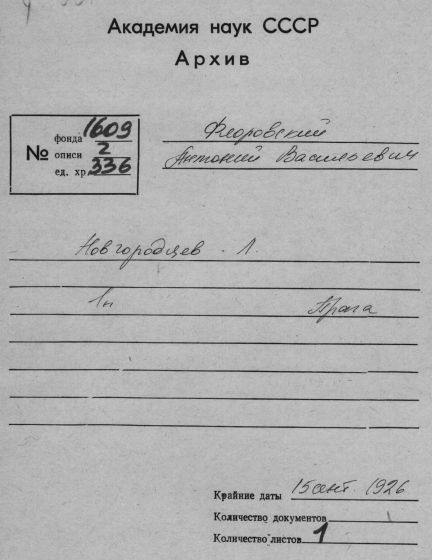 Академия наук СССР
Архив
№ фонда 1609
описи 2
ед. хр. 336
Флоровский
Антоний Васильевич
Новгородцев Л.
1п Прага
Крайние даты 15 сент. 1926
Количество документов 1
Количество листов 1